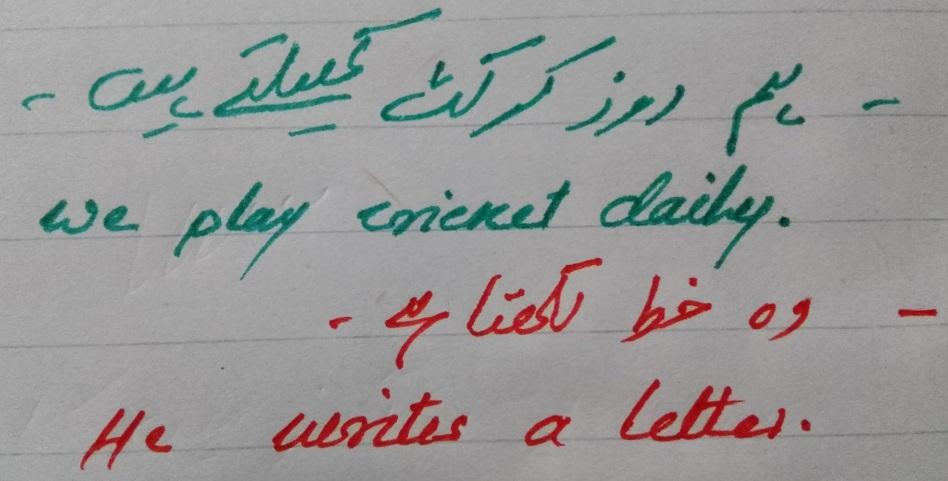 - ہم روز کرکٹ کھیلتے ہیں -
we play cricket daily.
- وہ خط لکھتا ہے -
He writes a letter.